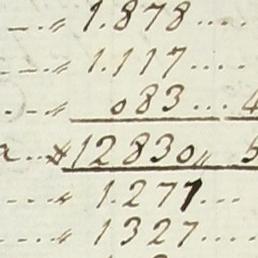 1.878....
1.117....
083... 4
a...*12830,, 5
1.277...
1327....